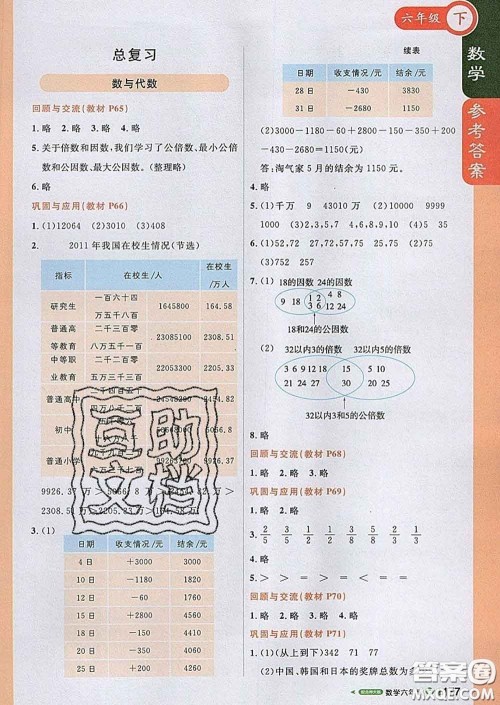 六年级 下
数学
参考答案
总复习
数与代数
回顾与交流(教材 P65)
1.略 2.略 3.略 4.略
5.关于倍数和因数,我们学习了公倍数、最小公倍
数和公因数、最大公因数。(整理略)
6.略
巩固与应用(教材 P66)
1.(1)12064 (2)3010 (3)408
2. 2011 年我国在校生情况(节选)
指标 在校生/人 在校生/万人
研究生 一百六十四万五千八百 1645800 164.58
普通高等教育 二千三百零八万五千一百 23085100 2308.51
中等职业教育 二千二百零五万三千三百 22053300 2205.33
普通高中
初中
普通小学
3.(1)
日期 收支情况/元 结余/元
4 日 +3000 3000
10 日 -1180 1820
12 日 -60 1760
15 日 +2800 4560
18 日 -150 4410
20 日 -350 4060
25 日 +200 4260
续表
日期 收支情况/元 结余/元
28 日 -430 3830
31 日 -2680 1150
(2)3000-1180-60+2800-150-350+200
-430-2680=1150(元)
答:淘气家 5 月的结余为 1150 元。
4.略
5.(1)千万 9 43010 万 (2)10000 10
(3)19 (4)2,3,7 4,6,8,9,10 (5)37
6.(1)52,72 (2)25,27,57,75 (3)25,75
(4)27,57,72,75 (5)25,27,52,57,72,75
(6)75 (7)752 257
7.(1) 18的因数 24的因数
9 18 1 2 3 6 4 8 12 24
18和24的公因数
(2) 32以内3的倍数 32以内5的倍数
3 6 9 12 18 21 24 27 15 30 5 10 20 25
32以内3和5的公倍数
8.略
回顾与交流(教材 P68)
1.略 2.略 3.略 4.略
巩固与应用(教材 P69)
5.> > = < > <
回顾与交流(教材 P70)
1.略 2.略
巩固与应用(教材 P71)
1.(1)(从上到下)342 71 77
(2)中国、韩国和日本的奖牌总数为多
数学六年
豆助文档
答案